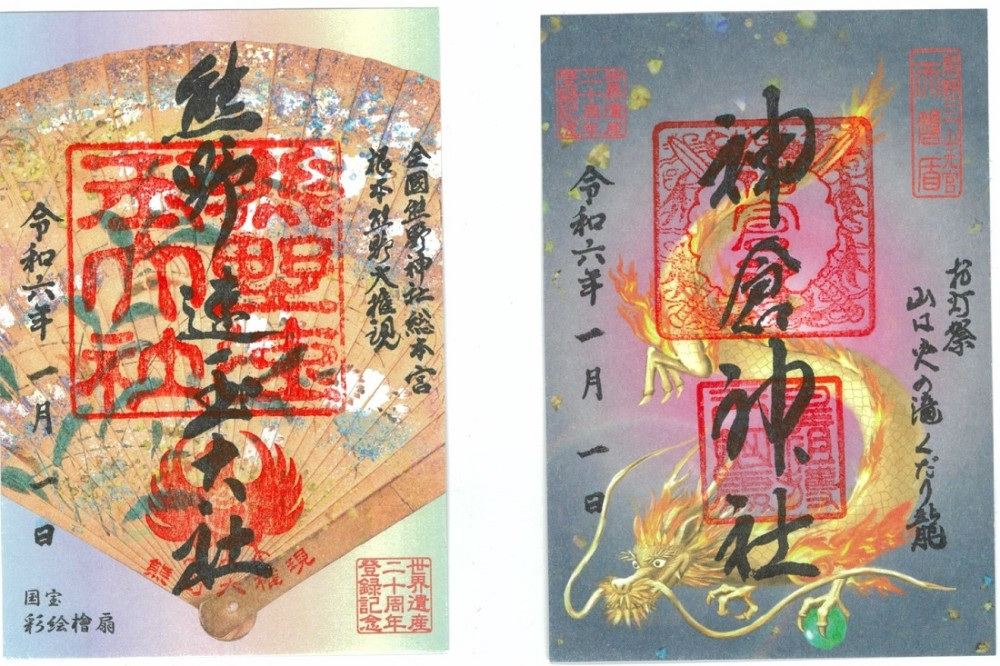 全國熊野神社総本宮
根本熊野大権現
熊野速玉大社
令和六年 一月 一日
熊野速玉大社
国宝
彩絵檜扇
世界遺産
二十周年
登録記念
お灯祭
山は火の滝くだり龍
神倉神社
令和六年 一月 一日
世界遺産
二十周年
登録記念